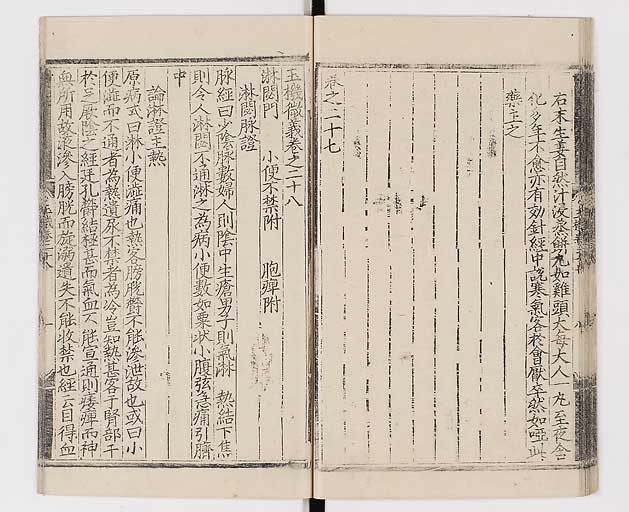 右末生姜自然汁浸蒸餅丸如雞頭大每大人一丸至夜含
化多年不愈亦有効針經中說寒氣客於會厭卒然如啞此
藥主之
卷之二十七
玉機微義卷之二十八
淋閟門 小便不禁附 胞痺附
淋閟脉證
脉經曰少陰脉數婦人則陰中生瘡男子則氣淋 熱結下焦
則令人淋閟不通淋之為病小便數如粟狀小腹弦急痛引臍
中
論淋證主熱
原病式曰淋小便澁痛也熱客膀胱欝不能滲泄故也或曰小
便澁而不通者為熱遺尿不禁者為冷豈知熱甚客于腎部干
於足厥陰之經廷孔欝結極甚而氣血不能宣通則痿痺而神
無所用故液滲入膀胱而旋溺遺失不能收禁也經云目得血